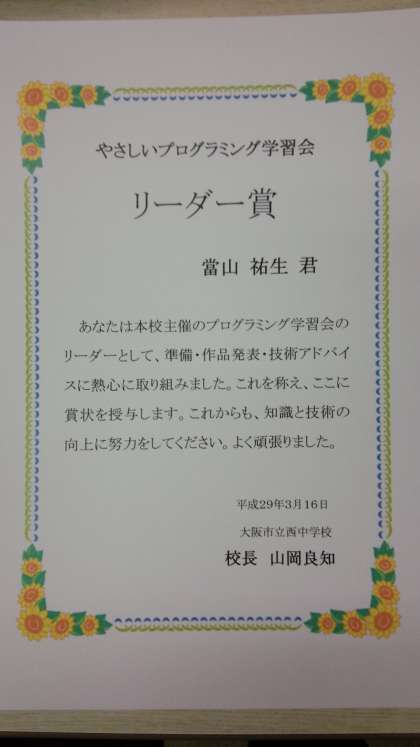 やさしいプログラミング学習会
リーダー賞
當山 祐生 君
あなたは本校主催のプログラミング学習会の
リーダーとして、準備・作品発表・技術アドバイ
スに熱心に取り組みました。これを称え、ここに
賞状を授与します。これからも、知識と技術の
向上に努力をしてください。よく頑張りました。
平成29年3月16日
大阪市立西中学校
校長 山岡良知